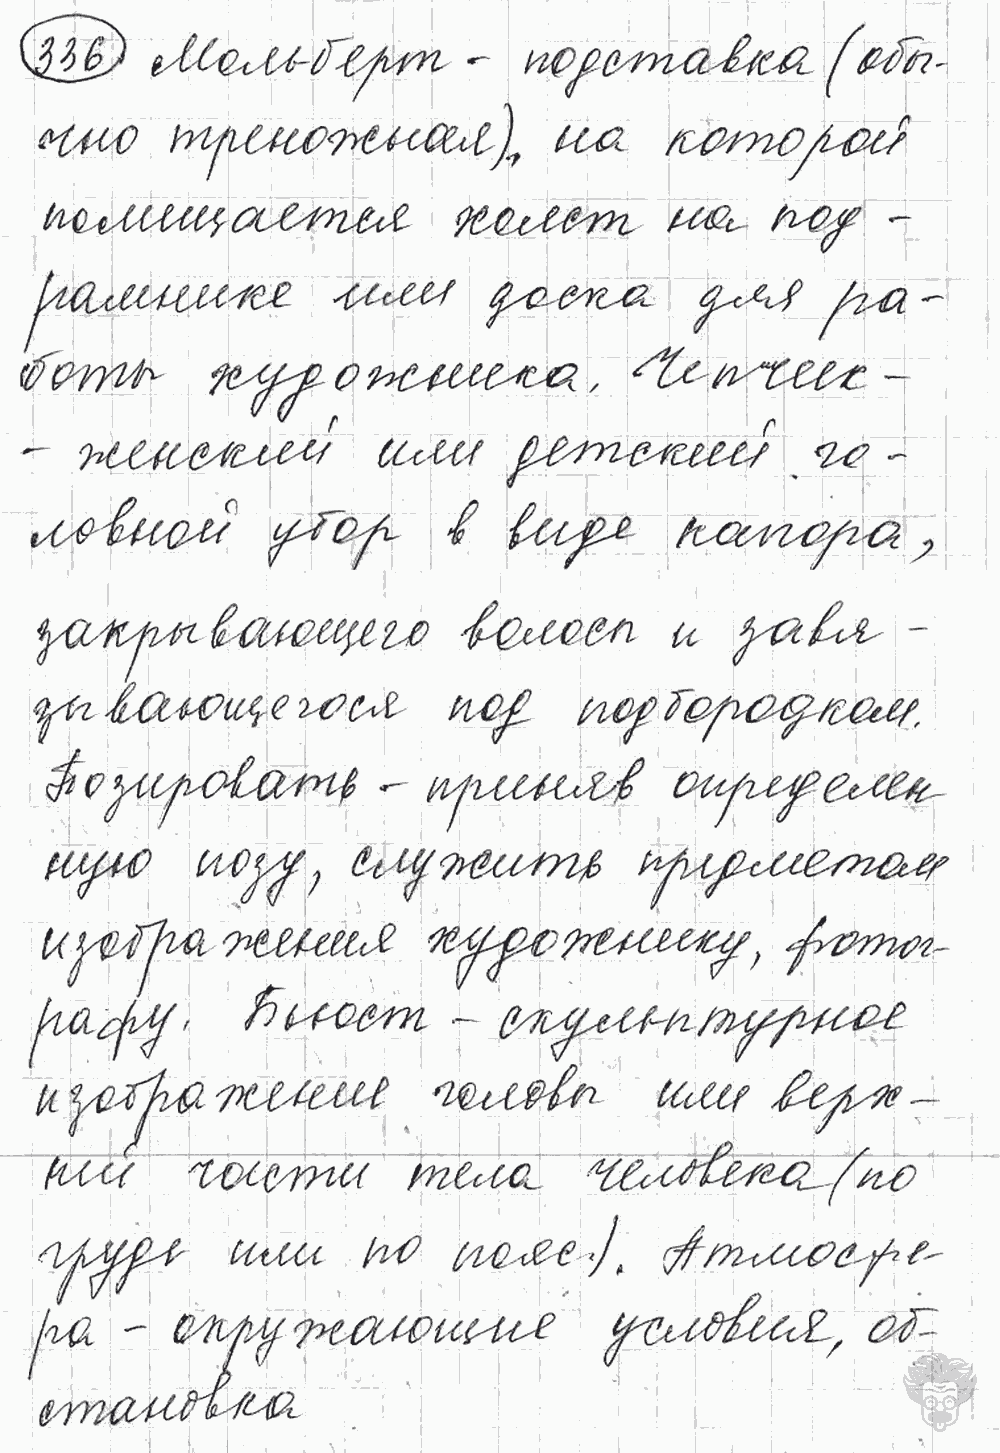 336. Мольберт - подставка (обы-
чно треножная), на которой
помещается холст на под -
рамнике или доска для ра-
боты художника. Чепчик -
- женский или детский го -
ловной убор в виде капора,
закрывающего волосы и завя -
зывающегося под подбородком.
Позировать - приняв определен
ную позу, служить предметом
изображения художнику, фотог-
рафу. Бьюст - скульптурное
изображение головы или верх-
ней части тела человека (по
грудь или по пояс.). Атмосфе-
ра - окружающие условия, об-
становка